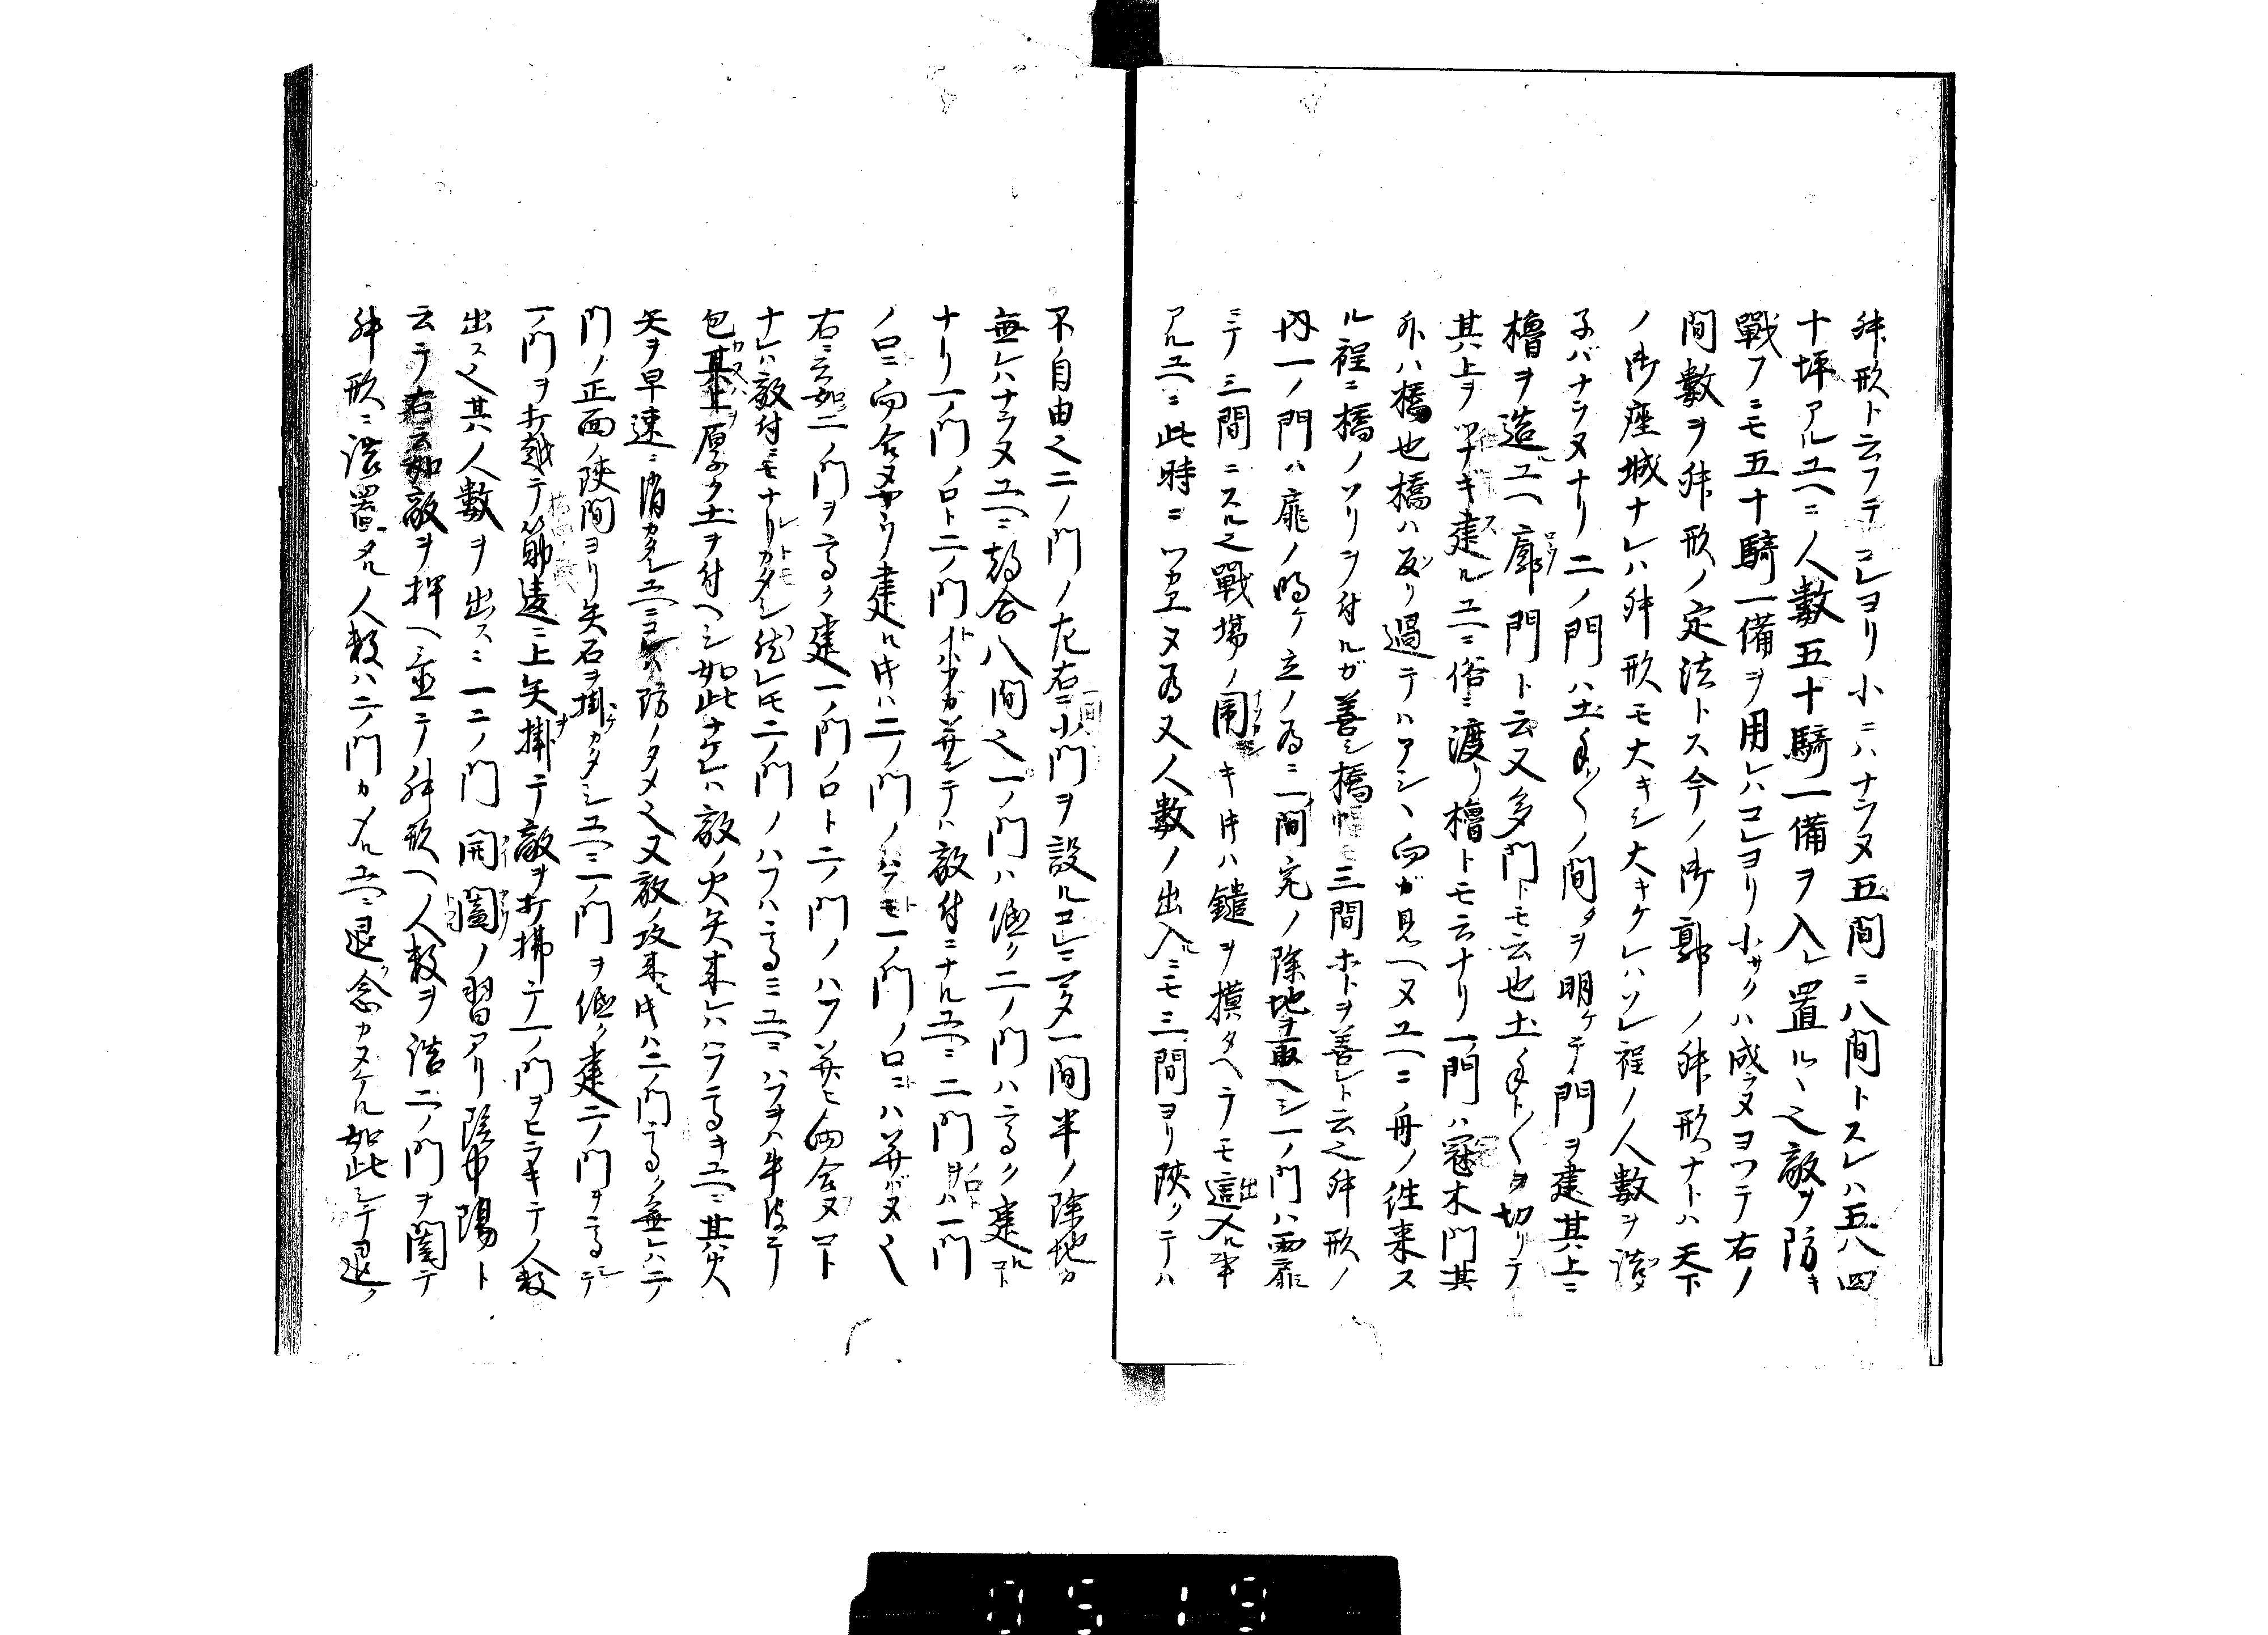 舛形ト云フテコレヨリ小ニハナラヌ五間ニ八間トスレハ五八四
十坪アルユヘニ人數五十騎一備ヲ入レ置ル丶之敵ヲ防キ
戰フニモ五十騎一備ヲ用レハコレヨリ小サクハ成ラヌヨツテ右ノ
間數ヲ舛形ノ定法トス今ノ御郭ノ舛形ナトハ天下
ノ御座城ナレハ舛形モ大キシ大キケレハソレ程ノ人數ヲ詰
子バナラヌナリ二ノ門ハ土手〱ノ間タヲ明ケテ門ヲ建其上ニ
櫓ヲ造ルユヘ廊門ト云又多門トモ云也土手ト〱ヲ切リテ
其上ヲツナギ建ルユヘニ俗ニ渡リ櫓トモ云ナリ一門ハ冠木門其
外ハ橋也橋ハ反リ過テハアシ丶向ガ見ヘヌユヘニ舟ノ往来ス
ル程ニ橋ノソリヲ付ルガ善シ橋幅三間ホトヲ善シト云之舛形ノ
内一ノ門ハ扉ノ明ケ立ノ為ニ二間宛ノ除地ヲ取ヘシ一ノ門ハ両扉
ニテ三間ニスル之戰場ノ閙キ時ハ鑓ヲ横タヘテモ出入ル事
アルユヘニ此時ニツカエヌ為又人數ノ出入ルニモ三間ヨリ陜クテハ
不自由之二ノ門ノ左右ニ小門ヲ設ルコレニマタ一間半ノ除地カ
無レハナラヌユヘニ都合八間之一ノ門ハ低ク二ノ門ハ高ク建ル
ナリ一ノ門ノ口ト二ノ門ガ並ンテハ敵付ニナルユヘニ二門ハ一門
ノ口ニ向合ヌヤウリ建ル時ハ二ノ門ノハフモ一ノ門ノ口ニハ並バヌ之
右ニ云如二ノ門ヲ高ク建一ノ門ノ口ト二ノ門ノハフ並ヒ向合ヌヿト
ナレハ敵付ニモナリカタシ然レトモ二ノ門ノハフハ高ミユヘニハフヲハ牛皮ニテ
包其上厚ク土ヲ付ヘシ如此ナケレハ敵ノ火矢来レハハフ高キユヘニ其火
矢ヲ早速ニ消カタシユヘニコレハ防ノタメ之又敵ノ攻来ル時ハ二ノ門高ク無レハ二
門ノ正面ノ陜間ヨリ矢石ヲ掛ケカタシユヘニ一ノ門ヲ低ク建二ノ門ヲ高シテ
一ノ門ヲ打越テ筋違ニ上矢ヲ掛テ敵ヲ打拂テ一ノ門ヲヒラキテ人数
出ス之其人數ヲ出スニ一二ノ門開闔ノ習アリ陰中陽ト
云テ右云如敵ヲ押ヘ並テ舛形ヘ人数ヲ詰二ノ門ヲ闔テ
舛形ニ詰置タル人数ハ二ノ門カメルユヘニ退ク念カヌケル如此シテ退ク